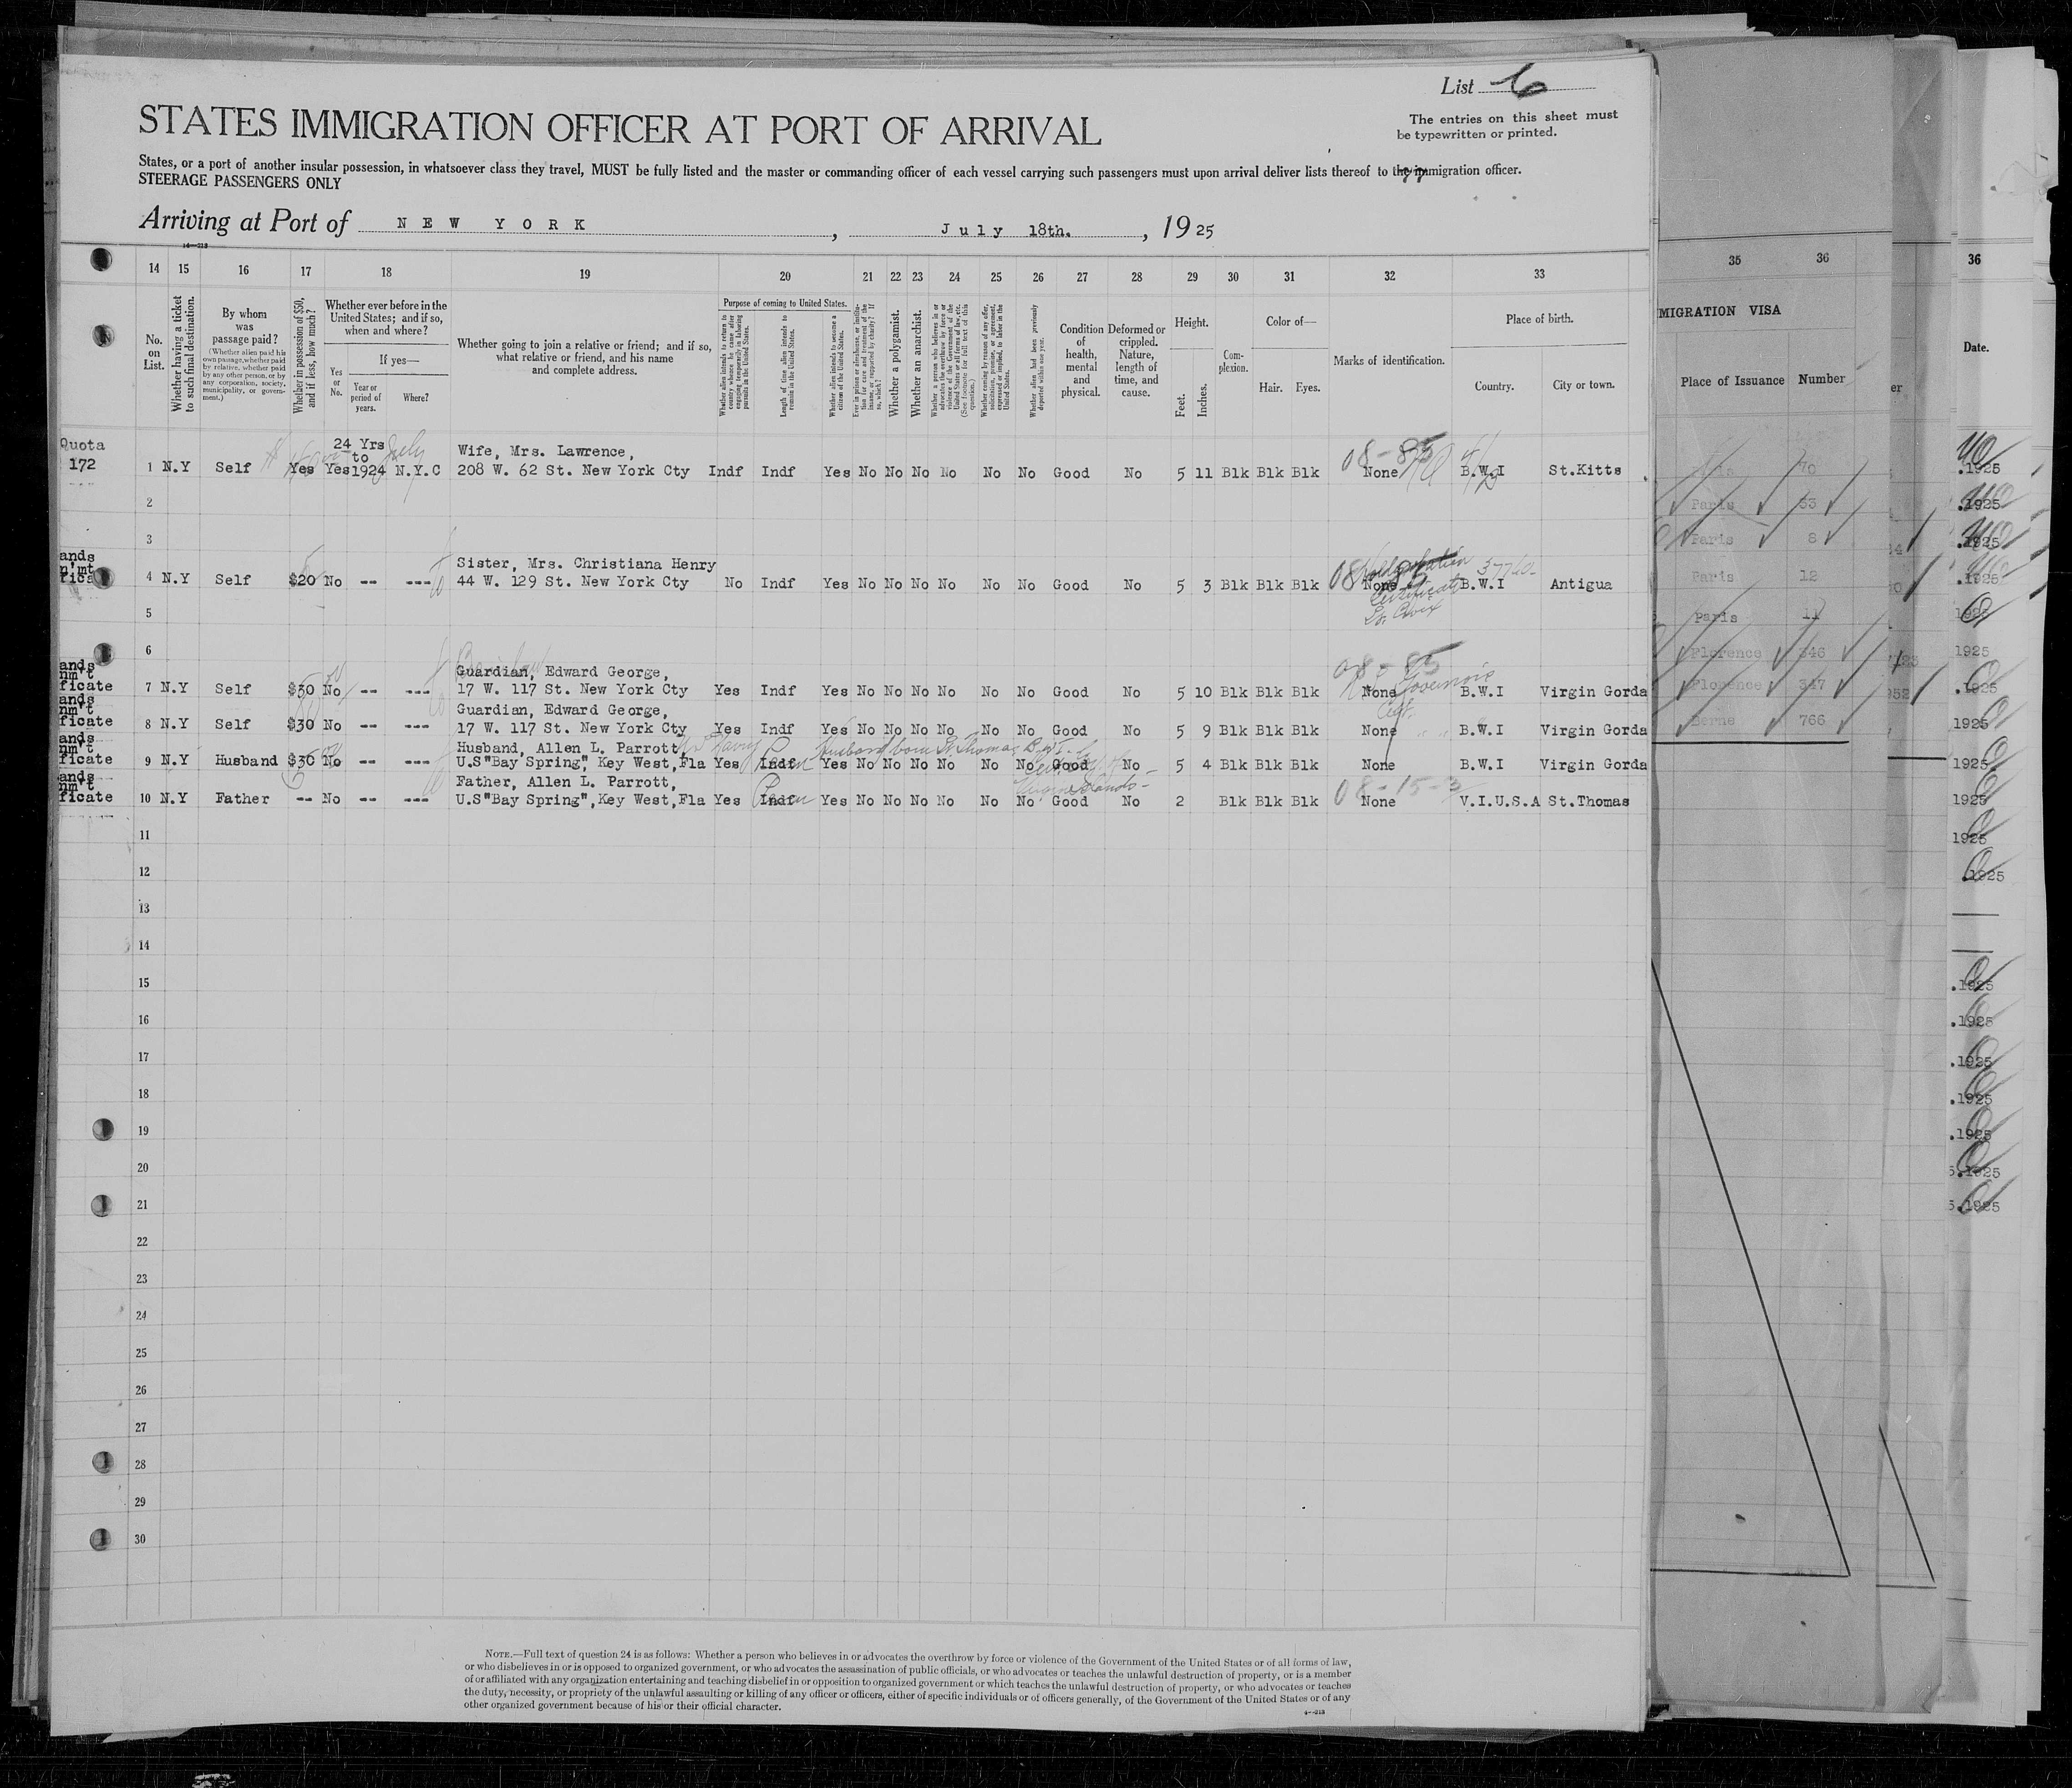 List 6
STATES IMMIGRATION OFFICER AT PORT OF ARRIVAL
The entries on this sheet must
be typewritten or printed.
States, or a port of another insular possession, in whatsoever class they travel, MUST be fully listed and the master or commanding officer of each vessel carrying such passengers must upon arrival deliver lists thereof to the immigration officer.
STEERAGE PASSENGERS ONLY
Arriving at Port of NEW YORK, July 18th., 1925
14 15 16 17 18 19 20 21 22 23 24 25 26 27 28 29 30 31 32 33
No. on List.
Whether having a ticket to such final destination.
By whom was passage paid?
(Whether alien paid his own passage, whether paid by relative, whether paid by any other person, or by any corporation, society, municipality, or government.)
Whether in possession of $50, and if less, how much?
Whether ever before in the United States; and if so, when and where?
Yes or No.
If yes—
Year or period of years.
Where?
Whether going to join a relative or friend; and if so, what relative or friend, and his name and complete address.
Purpose of coming to United States.
Whether alien intends to return to country whence he came after engaging temporarily in laboring pursuits in the United States.
Length of time alien intends to remain in the United States.
Whether alien intends to become a citizen of the United States.
Whether a polygamist.
Whether an anarchist.
Condition of health, mental and physical.
Deformed or crippled. Nature, length of time, and cause.
Height.
Feet. Inches.
Complexion.
Color of—
Hair. Eyes.
Marks of identification.
Place of birth.
Country. City or town.
Quota
172
24 Yrs
to
Wife, Mrs. Lawrence,
08-85
1 N.Y Self Yes Yes 1924 N.Y.C 208 W. 62 St. New York Cty Indf Indf Yes No No No No No No Good No 5 11 Blk Blk Blk None B.W.I St.Kitts
2
3
ands
n'mt
Sister, Mrs. Christiana Henry
4 N.Y Self $20 No -- --- 44 W. 129 St. New York Cty No Indf Yes No No No No No No Good No 5 3 Blk Blk Blk None B.W.I Antigua
Certificate
St. Croix
5
6
08-85
ands
nm't
Guardian, Edward George,
ficate 7 N.Y Self $30 No -- --- 17 W. 117 St. New York Cty Yes Indf Yes No No No No No No Good No 5 10 Blk Blk Blk None B.W.I Virgin Gorda
Governor's
Cert.
ands
nm't
Guardian, Edward George,
ficate 8 N.Y Self $30 No -- --- 17 W. 117 St. New York Cty Yes Indf Yes No No No No No No Good No 5 9 Blk Blk Blk None B.W.I Virgin Gorda
ands
nm't
Husband, Allen L. Parrott,
Husband born St Thomas
ficate 9 N.Y Husband $30 No -- --- U.S"Bay Spring", Key West,Fla Yes Indf Yes No No No No No No Good No 5 4 Blk Blk Blk None B.W.I Virgin Gorda
ands
nm't
Father, Allen L. Parrott,
08-15-3
ficate 10 N.Y Father -- No -- --- U.S"Bay Spring",Key West,Fla Yes Indf Yes No No No No No No Good No 2 Blk Blk Blk None V.I.U.S.A St.Thomas
11
12
13
14
15
16
17
18
19
20
21
22
23
24
25
26
27
28
29
30
NOTE.—Full text of question 24 is as follows: Whether a person who believes in or advocates the overthrow by force or violence of the Government of the United States or of all forms of law,
or who disbelieves in or is opposed to organized government, or who advocates the assassination of public officials, or who advocates or teaches the unlawful destruction of property, or is a member
of or affiliated with any organization entertaining and teaching disbelief in or opposition to organized government or which teaches the unlawful destruction of property, or who advocates or teaches
the duty, necessity, or propriety of the unlawful assaulting or killing of any officer or officers, either of specific individuals or of officers generally, of the Government of the United States or of any
other organized government because of his or their official character.
35 36
MIGRATION VISA
Place of Issuance Number
70
Paris 53
Paris 8
Paris 12
Paris 11
Florence 346
Florence 347
Berne 766
36
Date.
.1925
.1925
.1925
.1925
1925
1925
.1925
1925
1925
1925
1925
.1925
.1925
.1925
.1925
.1925
.1925
5.1925
5.1925